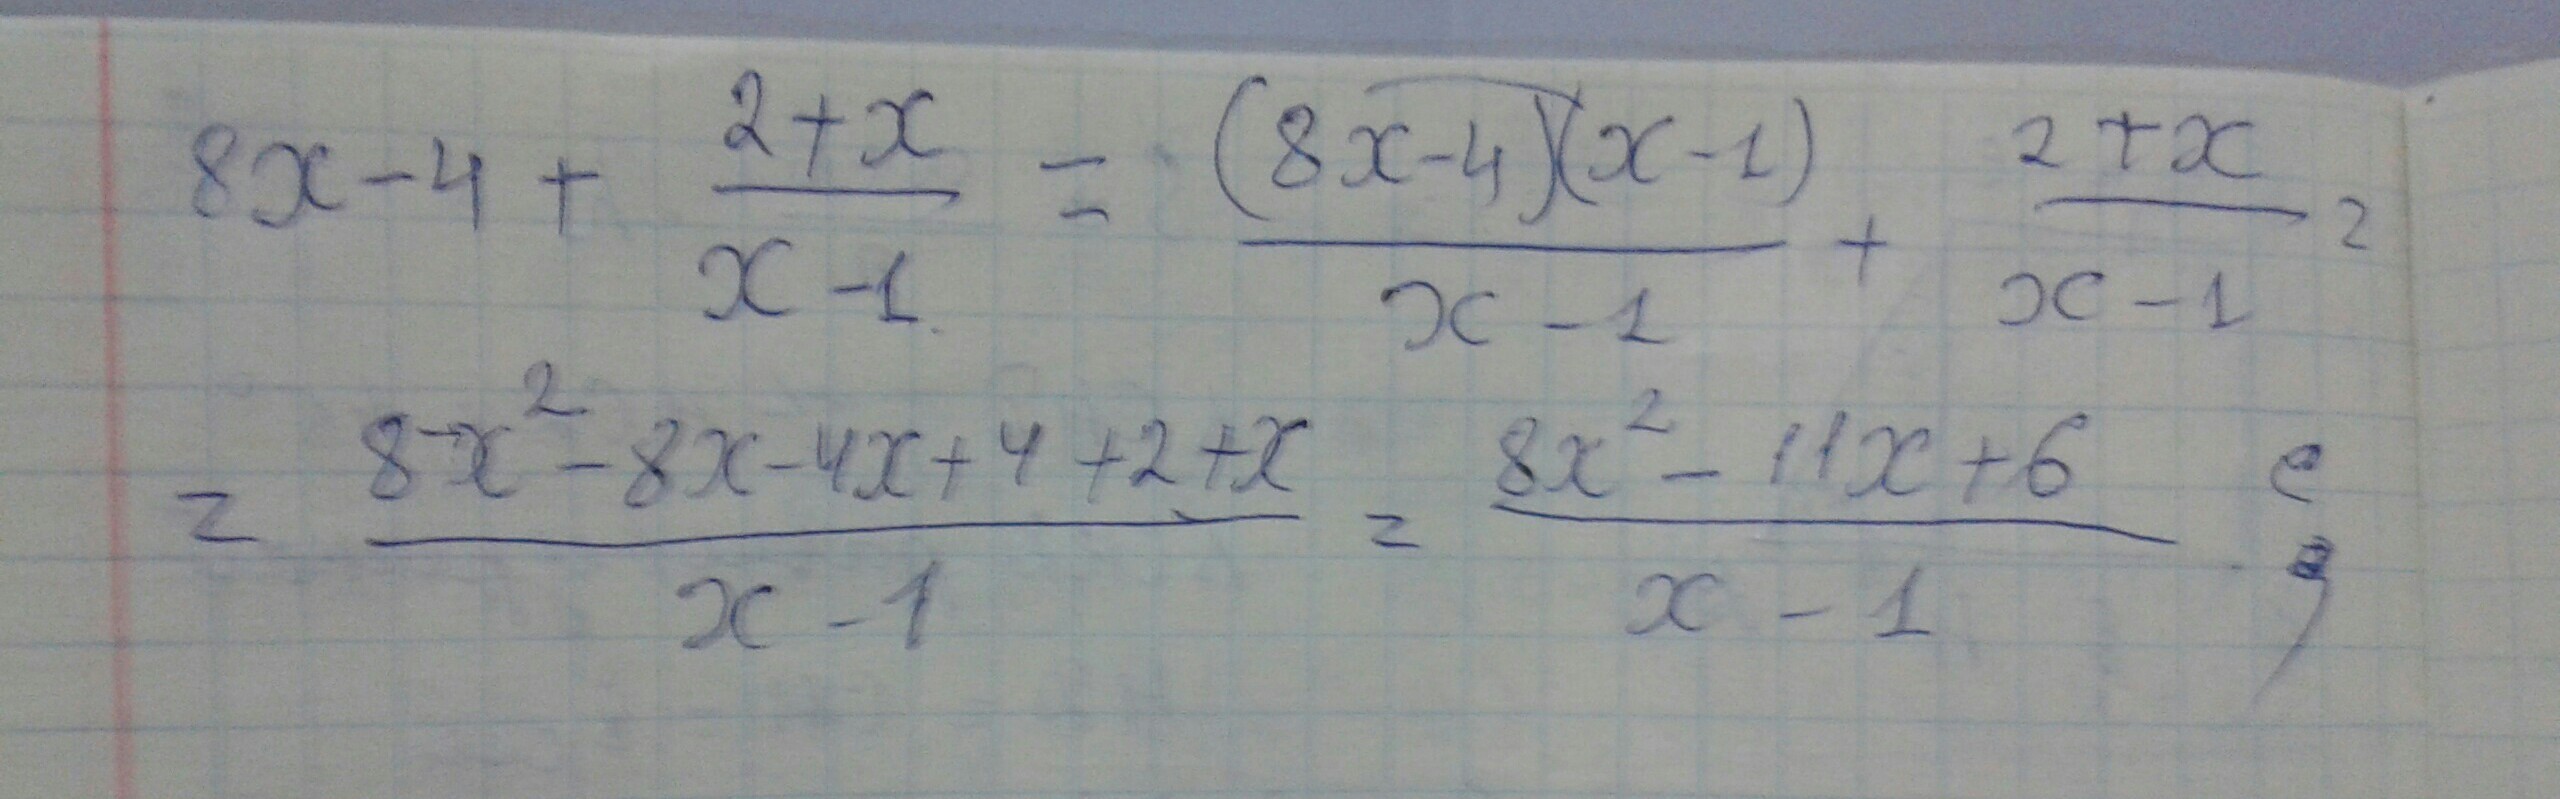 8x-4+\frac{2+x}{x-1}=\frac{(8x-4)(x-1)}{x-1}+\frac{2+x}{x-1}=
=\frac{8x^2-8x-4x+4+2+x}{x-1}=\frac{8x^2-11x+6}{x-1}